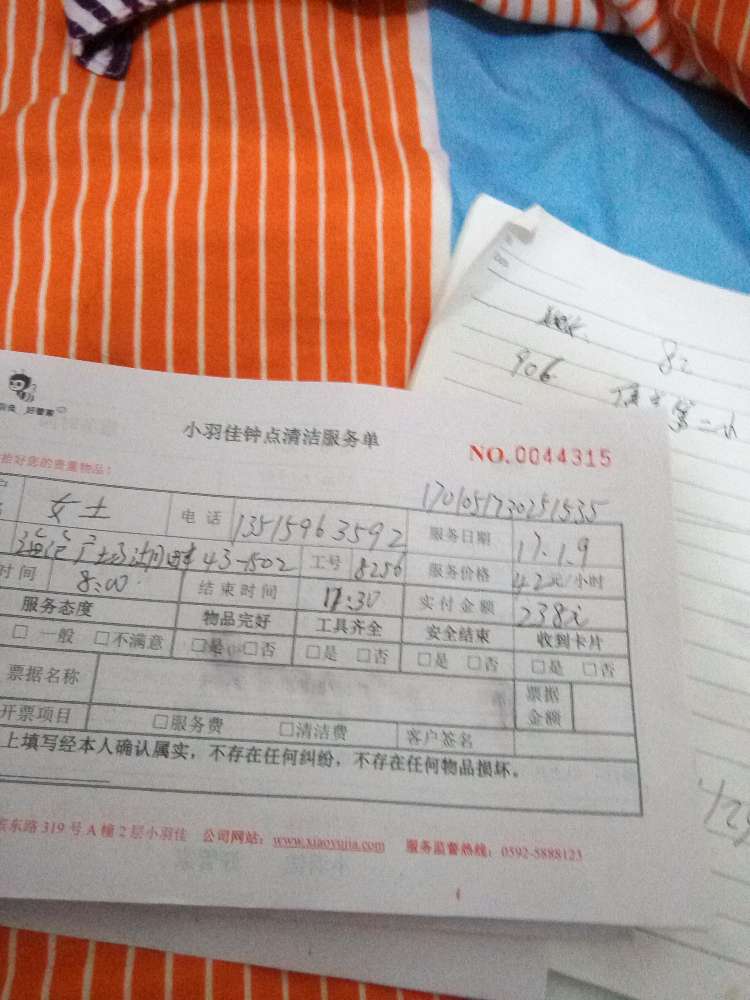 好管家
小羽佳钟点清洁服务单
NO.0044315
拾好您的贵重物品:
1701051730251535
女士 电话 13515963592 服务日期 17.1.9
43-1502 工号 8256 服务价格 42元/小时
时间 8:00 结束时间 11:30 实付金额 238元
服务态度 物品完好 工具齐全 安全结束 收到卡片
□一般 □不满意 □是 □否 □是 □否 □是 □否 □是 □否
票据名称 票据金额
开票项目 □服务费 □清洁费 客户签名
上填写经本人确认属实,不存在任何纠纷,不存在任何物品损坏。
东路319号A幢2层小羽佳 公司网站:www.xiaoyujia.com 服务监督热线:0592-5888123
906